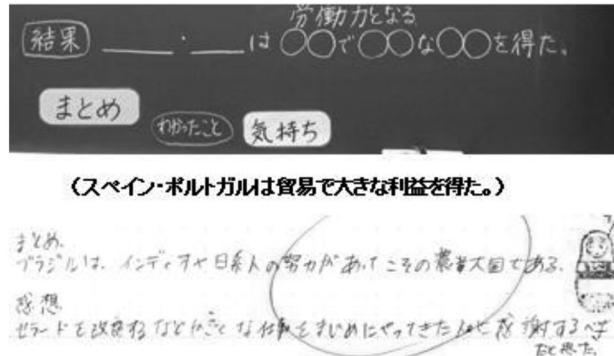 労働力となる
結果 ＿＿＿・＿＿は○○で○○な○○を得た。
まとめ
わかったこと 気持ち
(スペイン・ポルトガルは貿易で大きな利益を得た。)
まとめ.
ブラジルは、インディオや日系人の努力があってこその農業大国である。
感想
セラードを改良するなど な仕事をまじめにやってきた 感謝するべき
だと思った